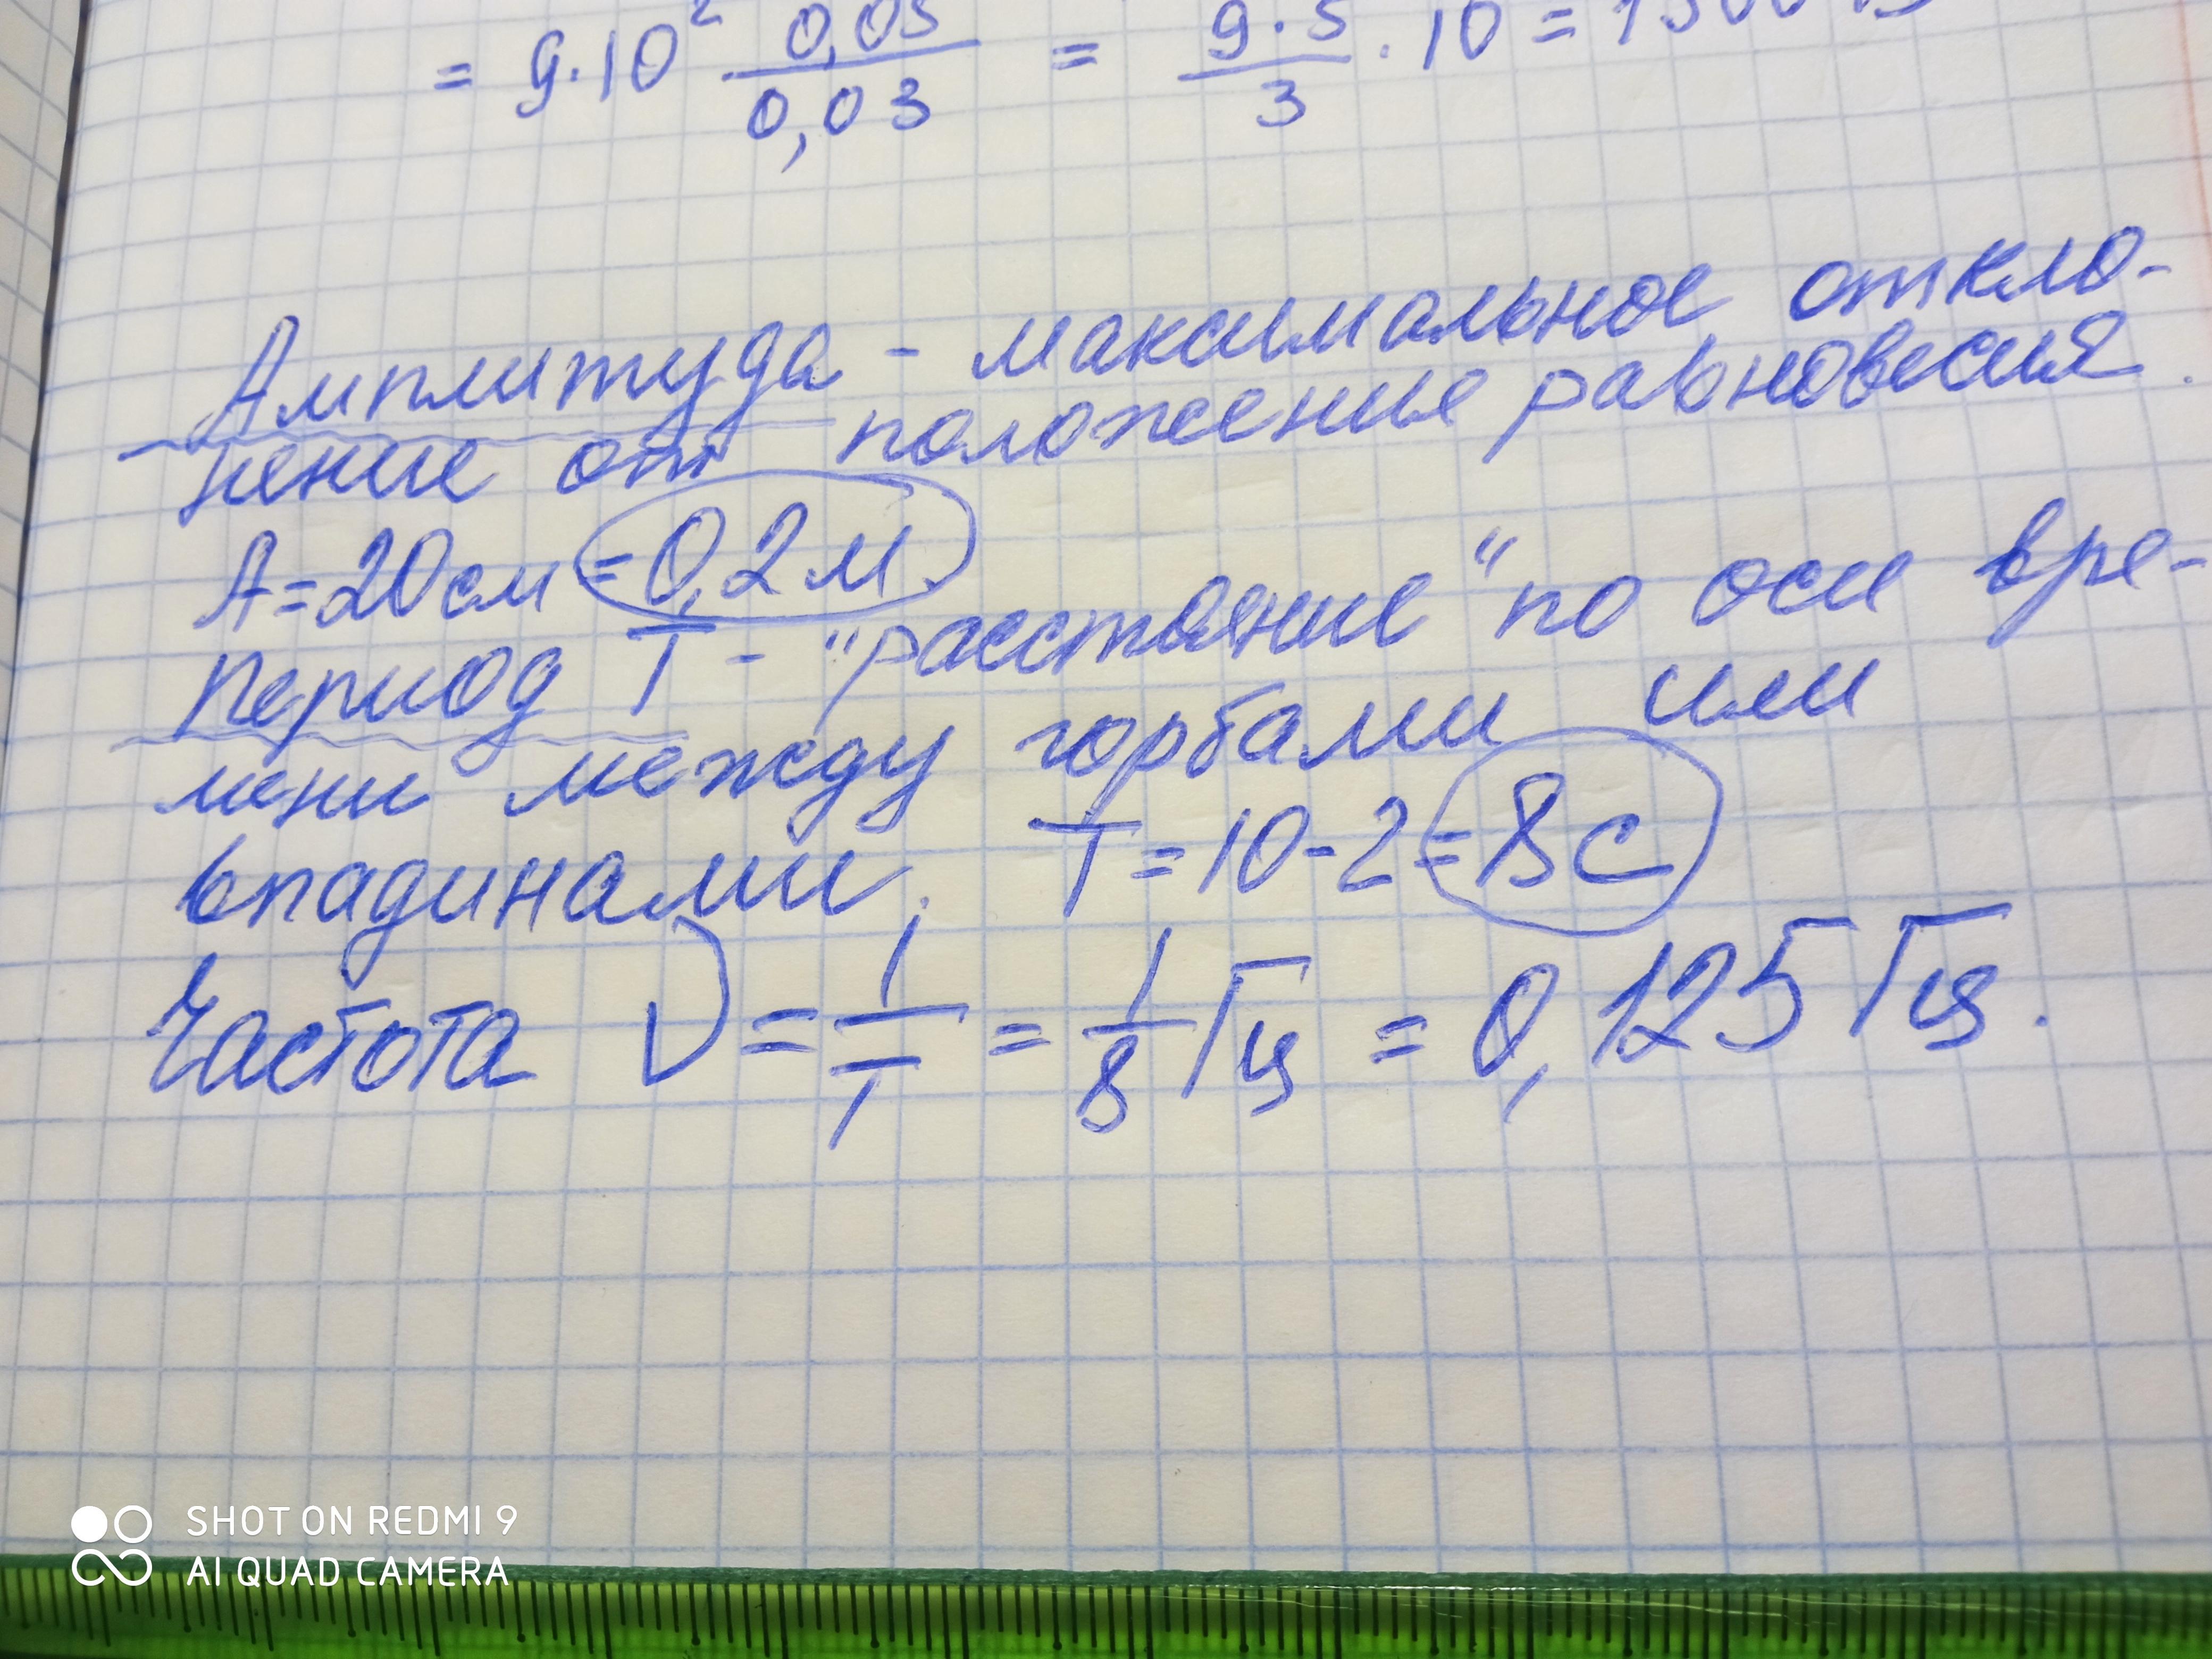 = 9·10² 0,05/0,03 = 9·5/3 · 10 =
Амплитуда - максимальное откло-
нение от положение равновесия.
А = 20 см = 0,2 м.
Период Т - "расстояние" по оси вре-
мени между горбами или
впадинами. Т = 10 - 2 = 8 с
Частота ν = 1/Т = 1/8 Гц = 0,125 Гц.
SHOT ON REDMI 9
AI QUAD CAMERA